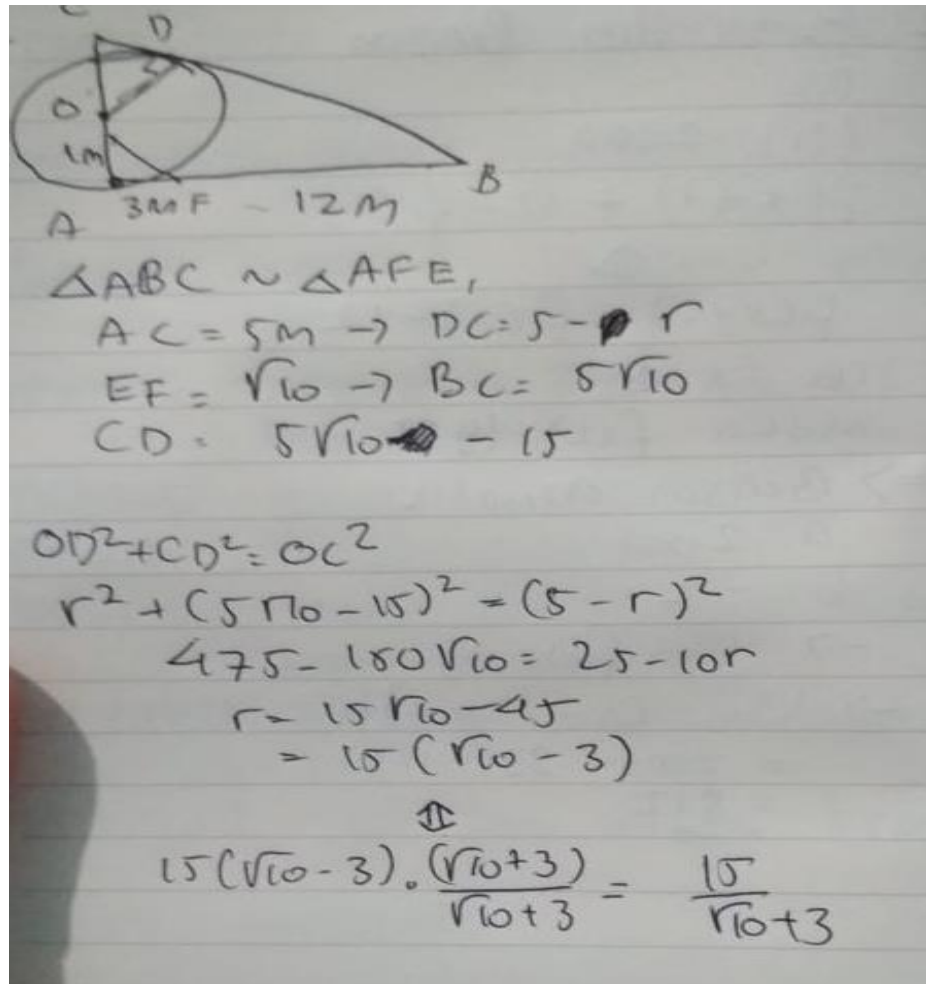 C
D
O
1m
B
3m F - 12m
A
△ABC ~ △AFE,
AC = 5m → DC = 5 - r
EF = √10 → BC = 5√10
CD = 5√10 - 15
OD² + CD² = OC²
r² + (5√10 - 15)² = (5 - r)²
475 - 150√10 = 25 - 10r
r = 15√10 - 45
= 15(√10 - 3)
⇕
15(√10 - 3) . (√10+3)/√10+3 = 15/√10+3